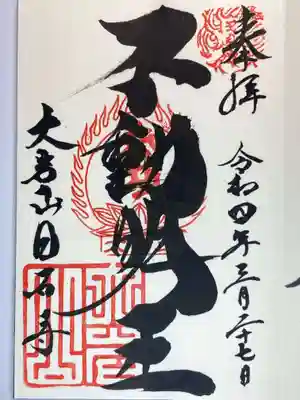 奉拝
令和四年三月二十七日
不動明王
大岩山日石寺